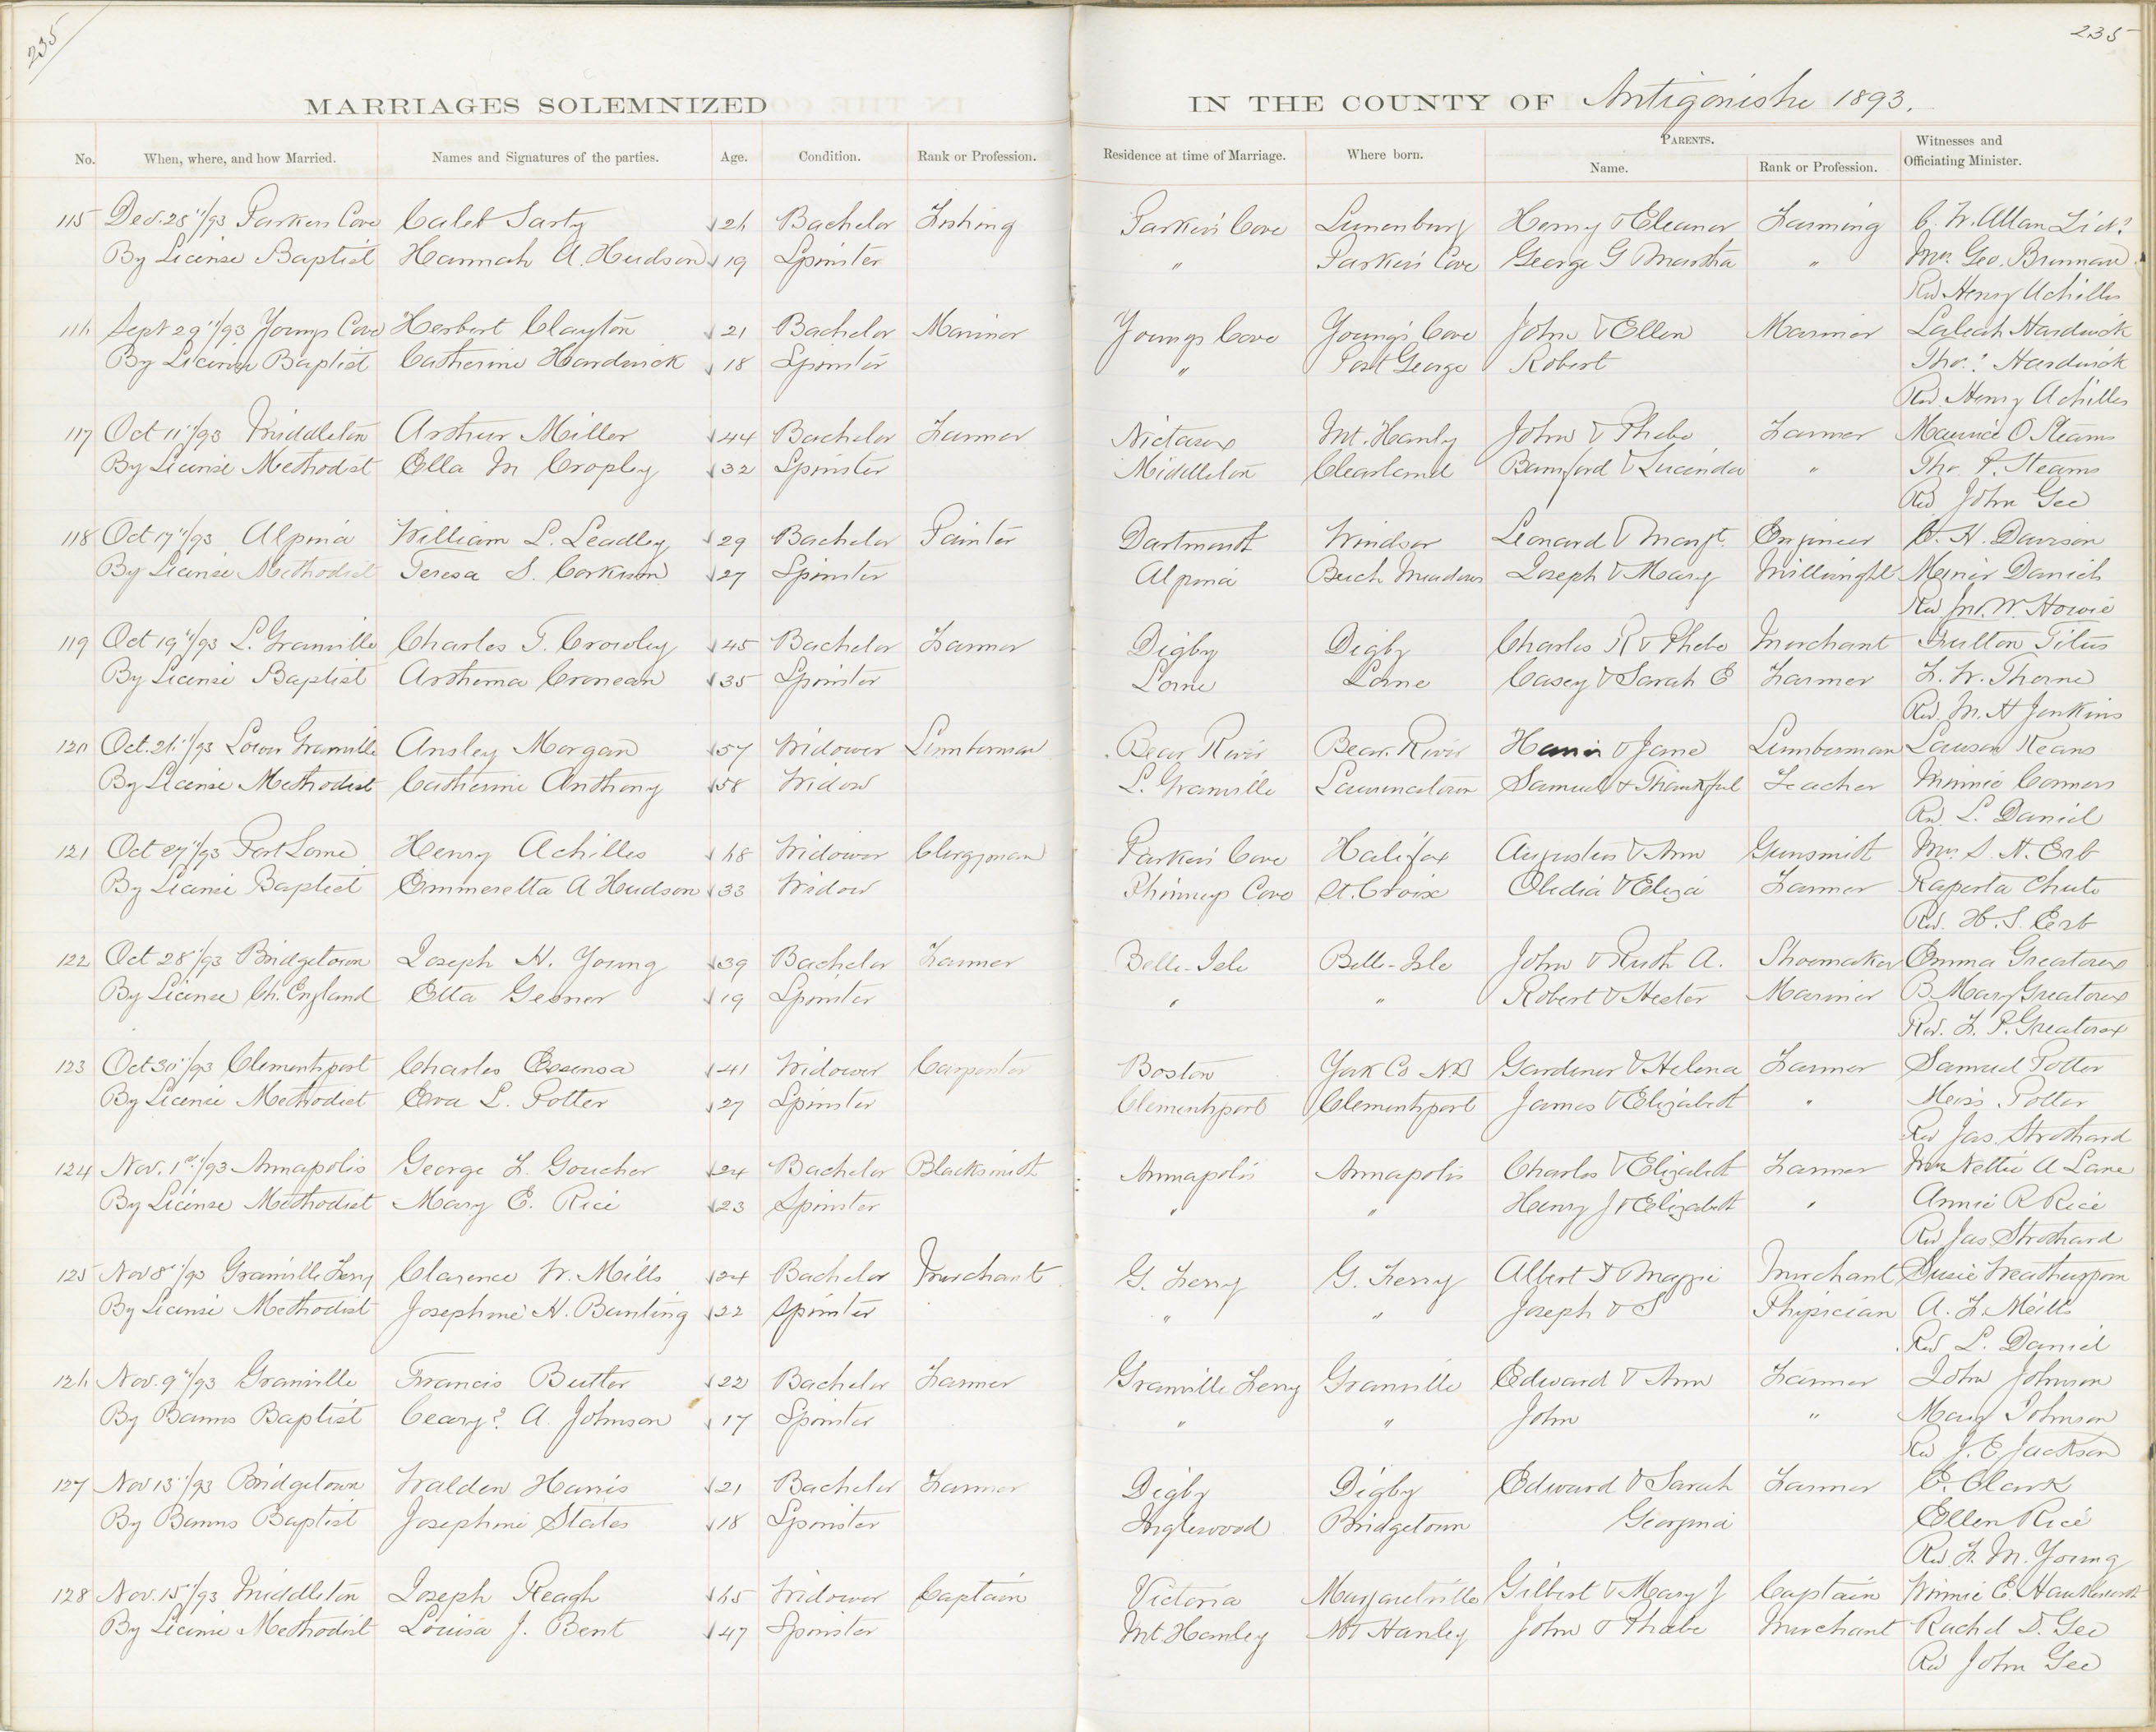 235
235
MARRIAGES SOLEMNIZED IN THE COUNTY OF Antigonishe 1893.
No. When, where, and how Married. Names and Signatures of the parties. Age. Condition. Rank or Profession. Residence at time of Marriage. Where born. PARENTS. Name. Rank or Profession. Witnesses and Officiating Minister.
115 Dec. 28"/93 Parkers Cove Caleb Sarty 26 Bachelor Fishing Parker's Cove Lunenburg Henry & Eleanor Farming C. W. Allan Lid?
By License Baptist Hannah A. Hudson 19 Spinster " Parker's Cove George G Martha " Mrs. Geo. Brinman
Rev Henry Achilles
116 Sept 29"/93 Youngs Cove Herbert Clayton 21 Bachelor Mariner Youngs Cove Young's Cove John & Ellen Mariner Hardwick
By License Baptist Catherine Hardwick 18 Spinster " Port George Robert Tho.? Hardwick
Rev. Henry Achilles
117 Oct 11"/93 Middleton Arthur Miller 44 Bachelor Farmer Nictaux Mt. Hanly John & Phebe Farmer Maurice O Stearns
By License Methodist Ella M Cropley 32 Spinster Middleton Clearland Bamford & Lucinda " Tho. P. Stearns
Rev John Gee
118 Oct 17"/93 Alpina William L. Leadley 29 Bachelor Painter Dartmouth Windsor Leonard & Margt. Engineer C. H. Davison
By License Methodist Teresa S. Corkum 27 Spinster Alpina Beech Meadows Joseph & Mary Millwright Daniels
Rev Jno. W. Howie
119 Oct 19"/93 L. Granville Charles T. Crowley 45 Bachelor Farmer Digby Digby Charles R & Phebe Merchant Fulton Titus
By License Baptist Arthema Cronean 35 Spinster Lorne Lorne Casey & Sarah E Farmer F. W. Thorne
Rev. M. H Jenkins
120 Oct. 26"/93 Lower Granville Ansley Morgan 57 Widower Lumberman Bear River Bear River & Jane Lumberman Lawson Keans
By License Methodist Catherine Anthony 58 Widow L. Granville Lawrencetown Samuel & Thankful Teacher Minnie Connors
Rev. L. Daniel
121 Oct 27"/93 Port Lorne Henry Achilles 68 Widower Clergyman Parker's Cove Halifax Augustus & Ann Gunsmith Mrs. S. H. Erb
By License Baptist Emmeretta A Hudson 33 Widow Phinneys Cove St. Croix Obedia & Eliza Farmer Raperta Chute
Rev. H. S. Erb
122 Oct 28"/93 Bridgetown Joseph H. Young 39 Bachelor Farmer Belle-Isle Belle-Isle John & Ruth A. Shoemaker Emma Greatorex
By License Ch. England Etta Gesner 19 Spinster " " Robert & Hester Mariner B. Mary Greatorex
Rev. F. P. Greatorex
123 Oct 30"/93 Clementsport Charles 41 Widower Carpenter Boston York Co N.B Gardener & Helena Farmer Samuel Potter
By License Methodist Eva L. Potter 27 Spinster Clementsport Clementsport James & Elizabeth " Potter
Rev Jas. Strothard
124 Nov. 1st/93 Annapolis George F. Goucher 24 Bachelor Blacksmith Annapolis Annapolis Charles & Elizabeth Farmer Mrs Nettie A Lane
By License Methodist Mary E. Rice 23 Spinster " " Henry J & Elizabeth " Annie R Rice
Rev Jas Strothard
125 Nov 8"/93 Granville Ferry Clarence W. Mills 24 Bachelor Merchant G. Ferry G. Ferry Albert D & Maggie Merchant Susie Weatherspoon
By License Methodist Josephine H. Bunting 22 Spinster " " Joseph & S Physician A. F. Mills
Rev L. Daniel
126 Nov. 9"/93 Granville Francis Butler 22 Bachelor Farmer Granville Ferry Granville Edward & Ann Farmer John Johnson
By Banns Baptist Ceary? A. Johnson 17 Spinster " " John " Mary Johnson
Rev J. E. Jackson
127 Nov 13"/93 Bridgetown Walden Harris 21 Bachelor Farmer Digby Digby Edward & Sarah Farmer C. Clark
By Banns Baptist Josephine States 18 Spinster Inglewood Bridgetown Georgina Ellen Rice
Rev. F. M. Young
128 Nov. 15"/93 Middleton Joseph Reagh 65 Widower Captain Victoria Margaretville Gilbert & Mary J Captain Winnie E. Hawkesworth
By License Methodist Louisa J. Bent 47 Spinster Mt. Hanley Mt Hanley John & Phebe Merchant Rachel D. Gee
Rev John Gee